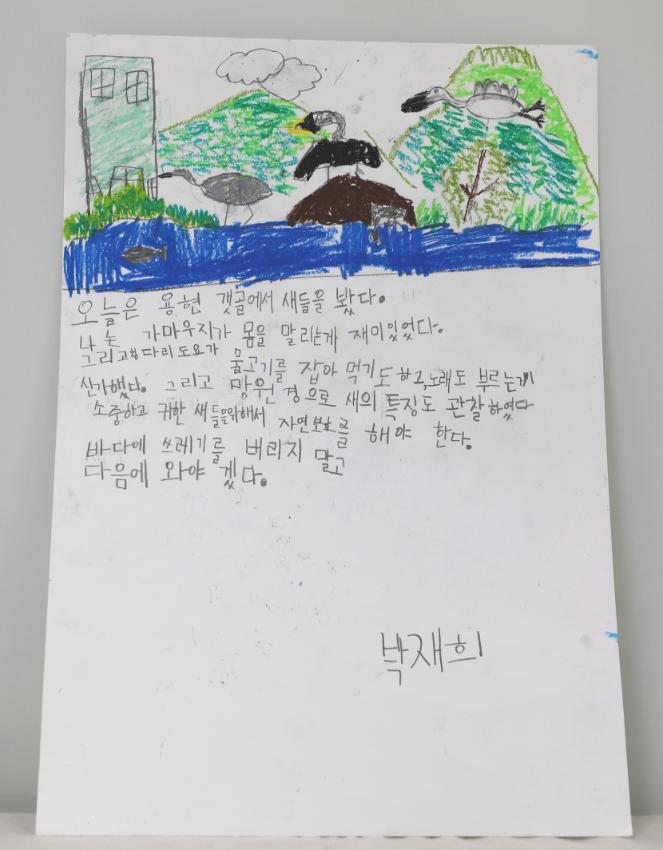 오늘은 용현 갯골에서 새들을 봤다.
나는 가마우지가 몸을 말리는게 재미있었다.
그리고 다리도요가 물고기를 잡아 먹기도 하고, 노래도 부르는게
신기했다. 그리고 망원경으로 새의 특징도 관찰하였다
소중하고 귀한 새들을위해서 자연보호를 해야 한다.
바다에 쓰레기를 버리지 말고
다음에 와야 겠다.
박재희